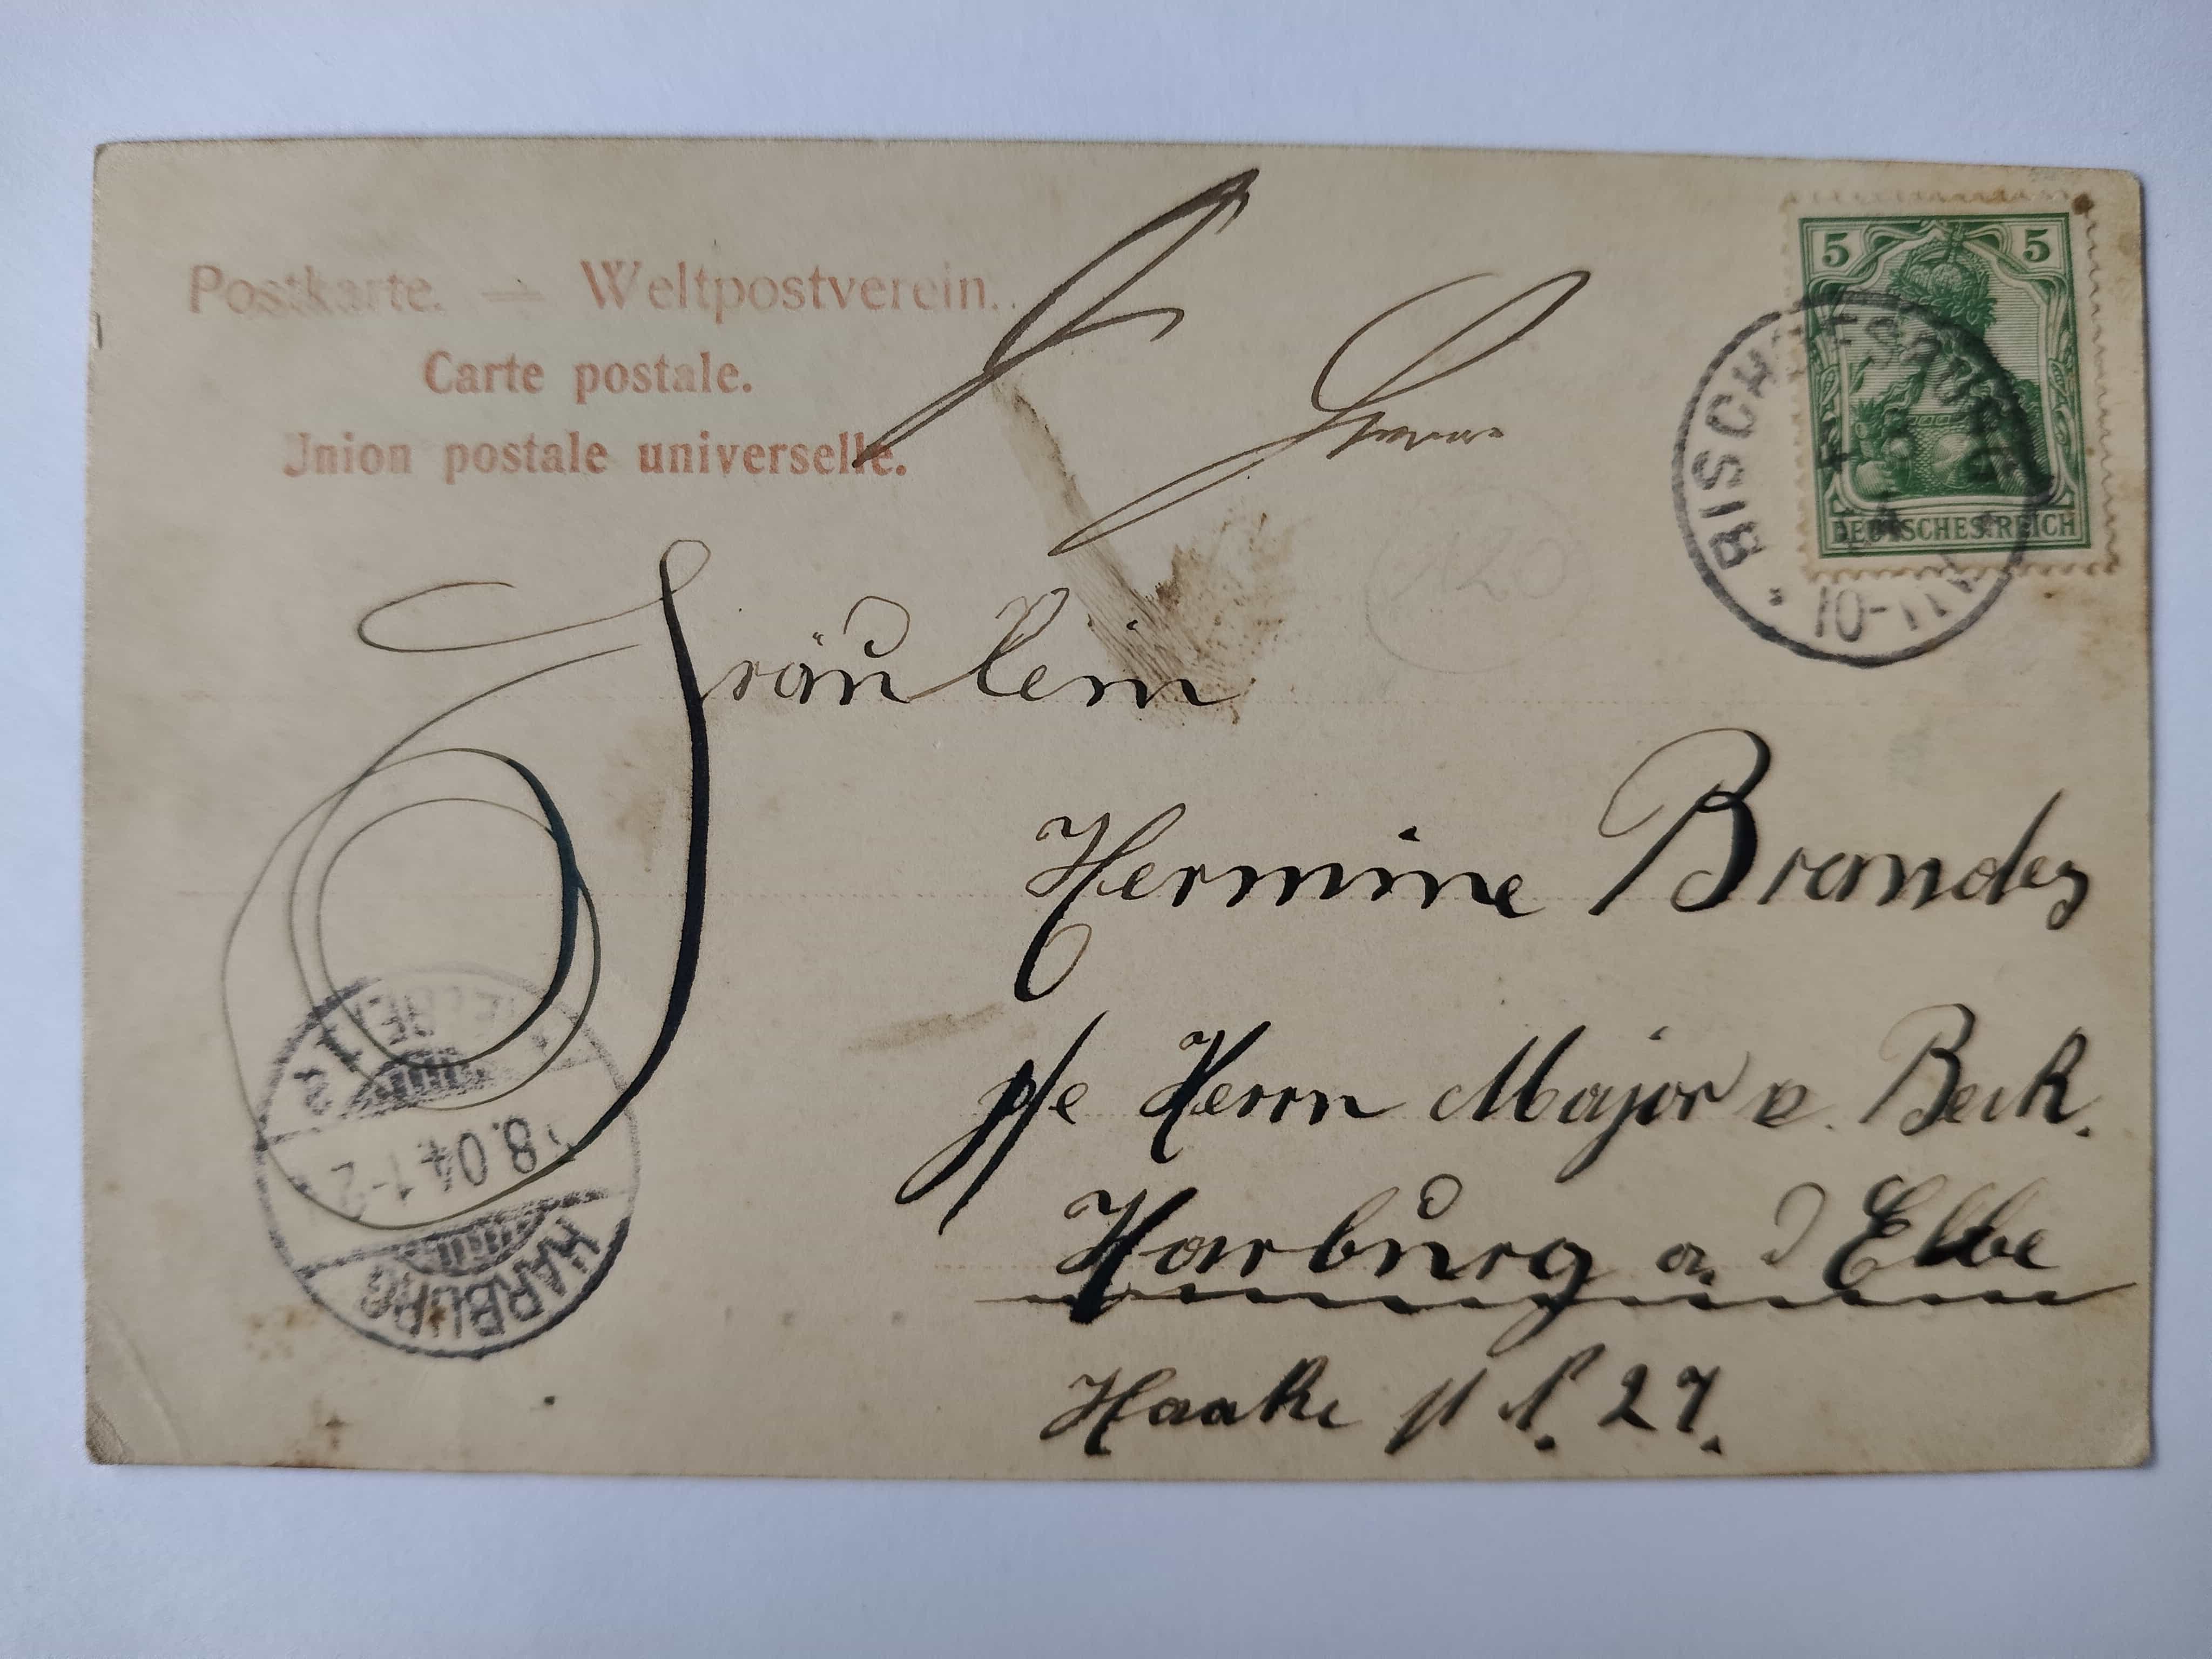 Postkarte. — Weltpostverein.
Carte postale.
Union postale universelle.
5 5
DEUTSCHES REICH
BISCHOFSBURG
10-11V
120
Fräulein
Hermine Brandes
p/e Herrn Major v. Beck.
Harburg a. d Elbe
Haake 27.
HARBURG
8.04 1-2